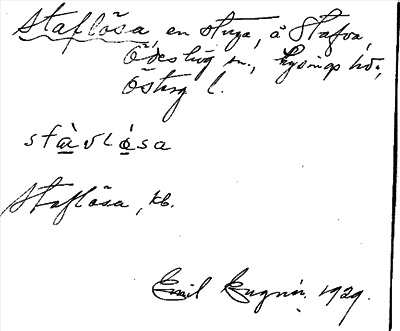 Staflösa, en stuga, å Stafva,
Ödeshög sn., Lysings hd.,
Österg l.
stàvlò̩sa
Staflösa, kb.
Emil 1929.